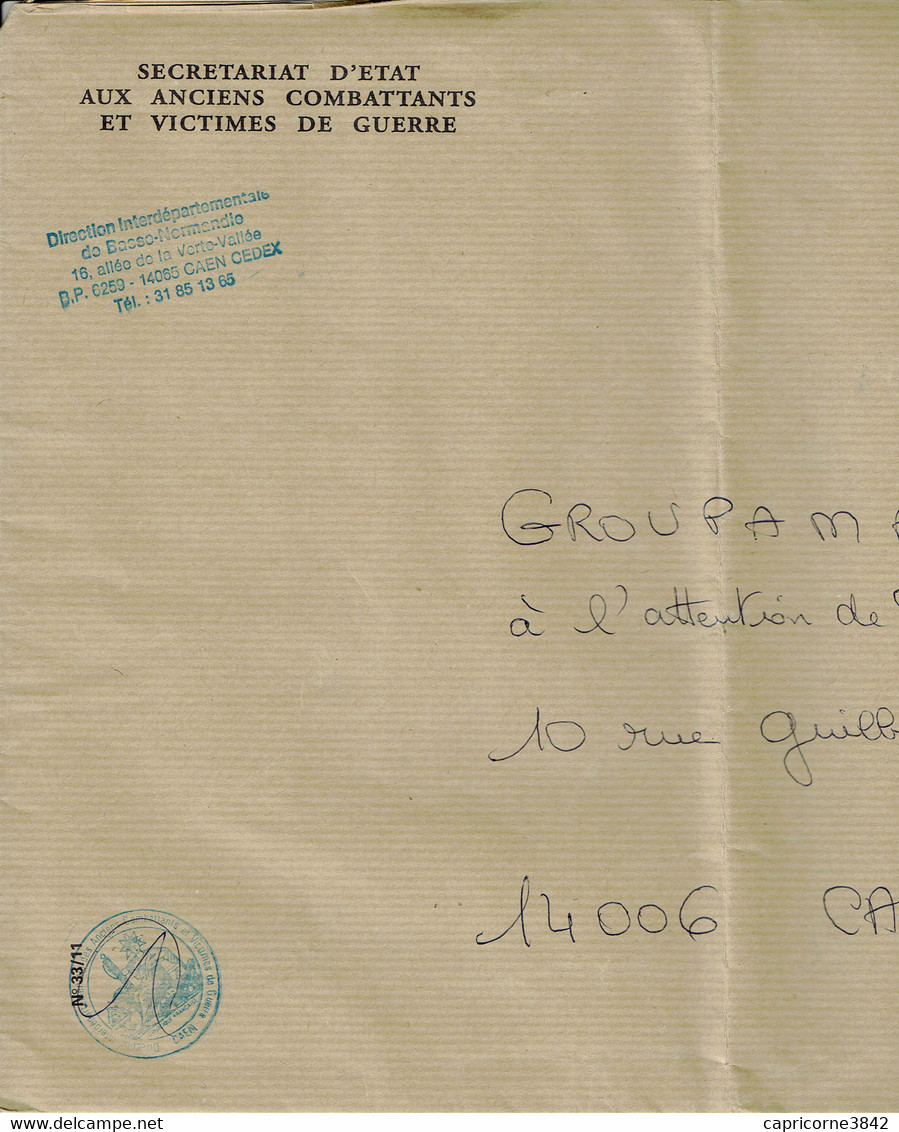 SECRETARIAT D'ETAT
AUX ANCIENS COMBATTANTS
ET VICTIMES DE GUERRE
Direction Interdépartementale
de Basse-Normandie
16, allée de la Verte-Vallée
B.P. 6259 - 14065 CAEN CEDEX
Tél. : 31 85 13 65
GROUPAMA
à l'attention de
10 rue Guillb
14006 CA
N° 33/11
des Anciens Combattants et Victimes de Guerre
CAEN
delcampe.net
capricorne3842